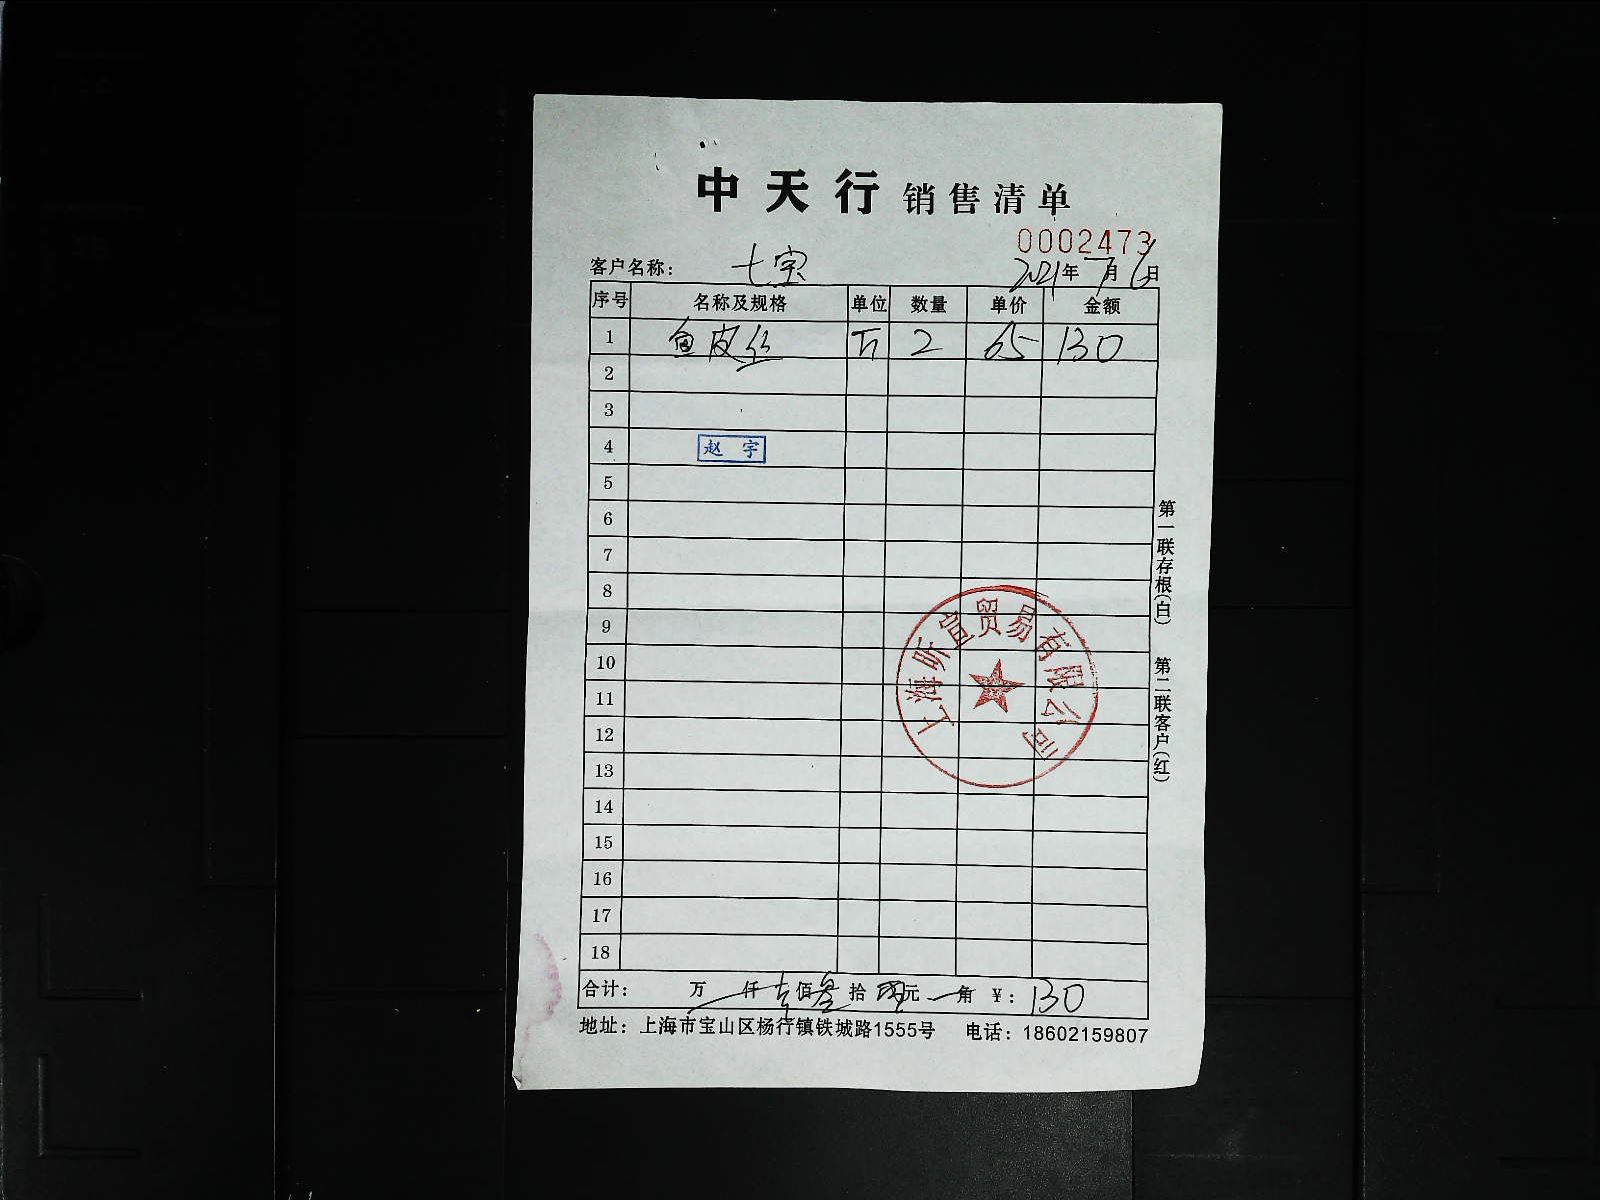 中天行 销售清单
0002473
客户名称: 七宝 2021年7月6日
序号 名称及规格 单位 数量 单价 金额
1 鱼皮丝 斤 2 65 130
2
3
4 赵 宇
5
6
7
8
9
10
11
12
13
14
15
16
17
18
上海昕宣贸易有限公司
合计: 万 仟 壹佰叁拾 元 角 ¥: 130
地址: 上海市宝山区杨行镇铁城路1555号 电话: 18602159807
第一联存根(白) 第二联客户(红)